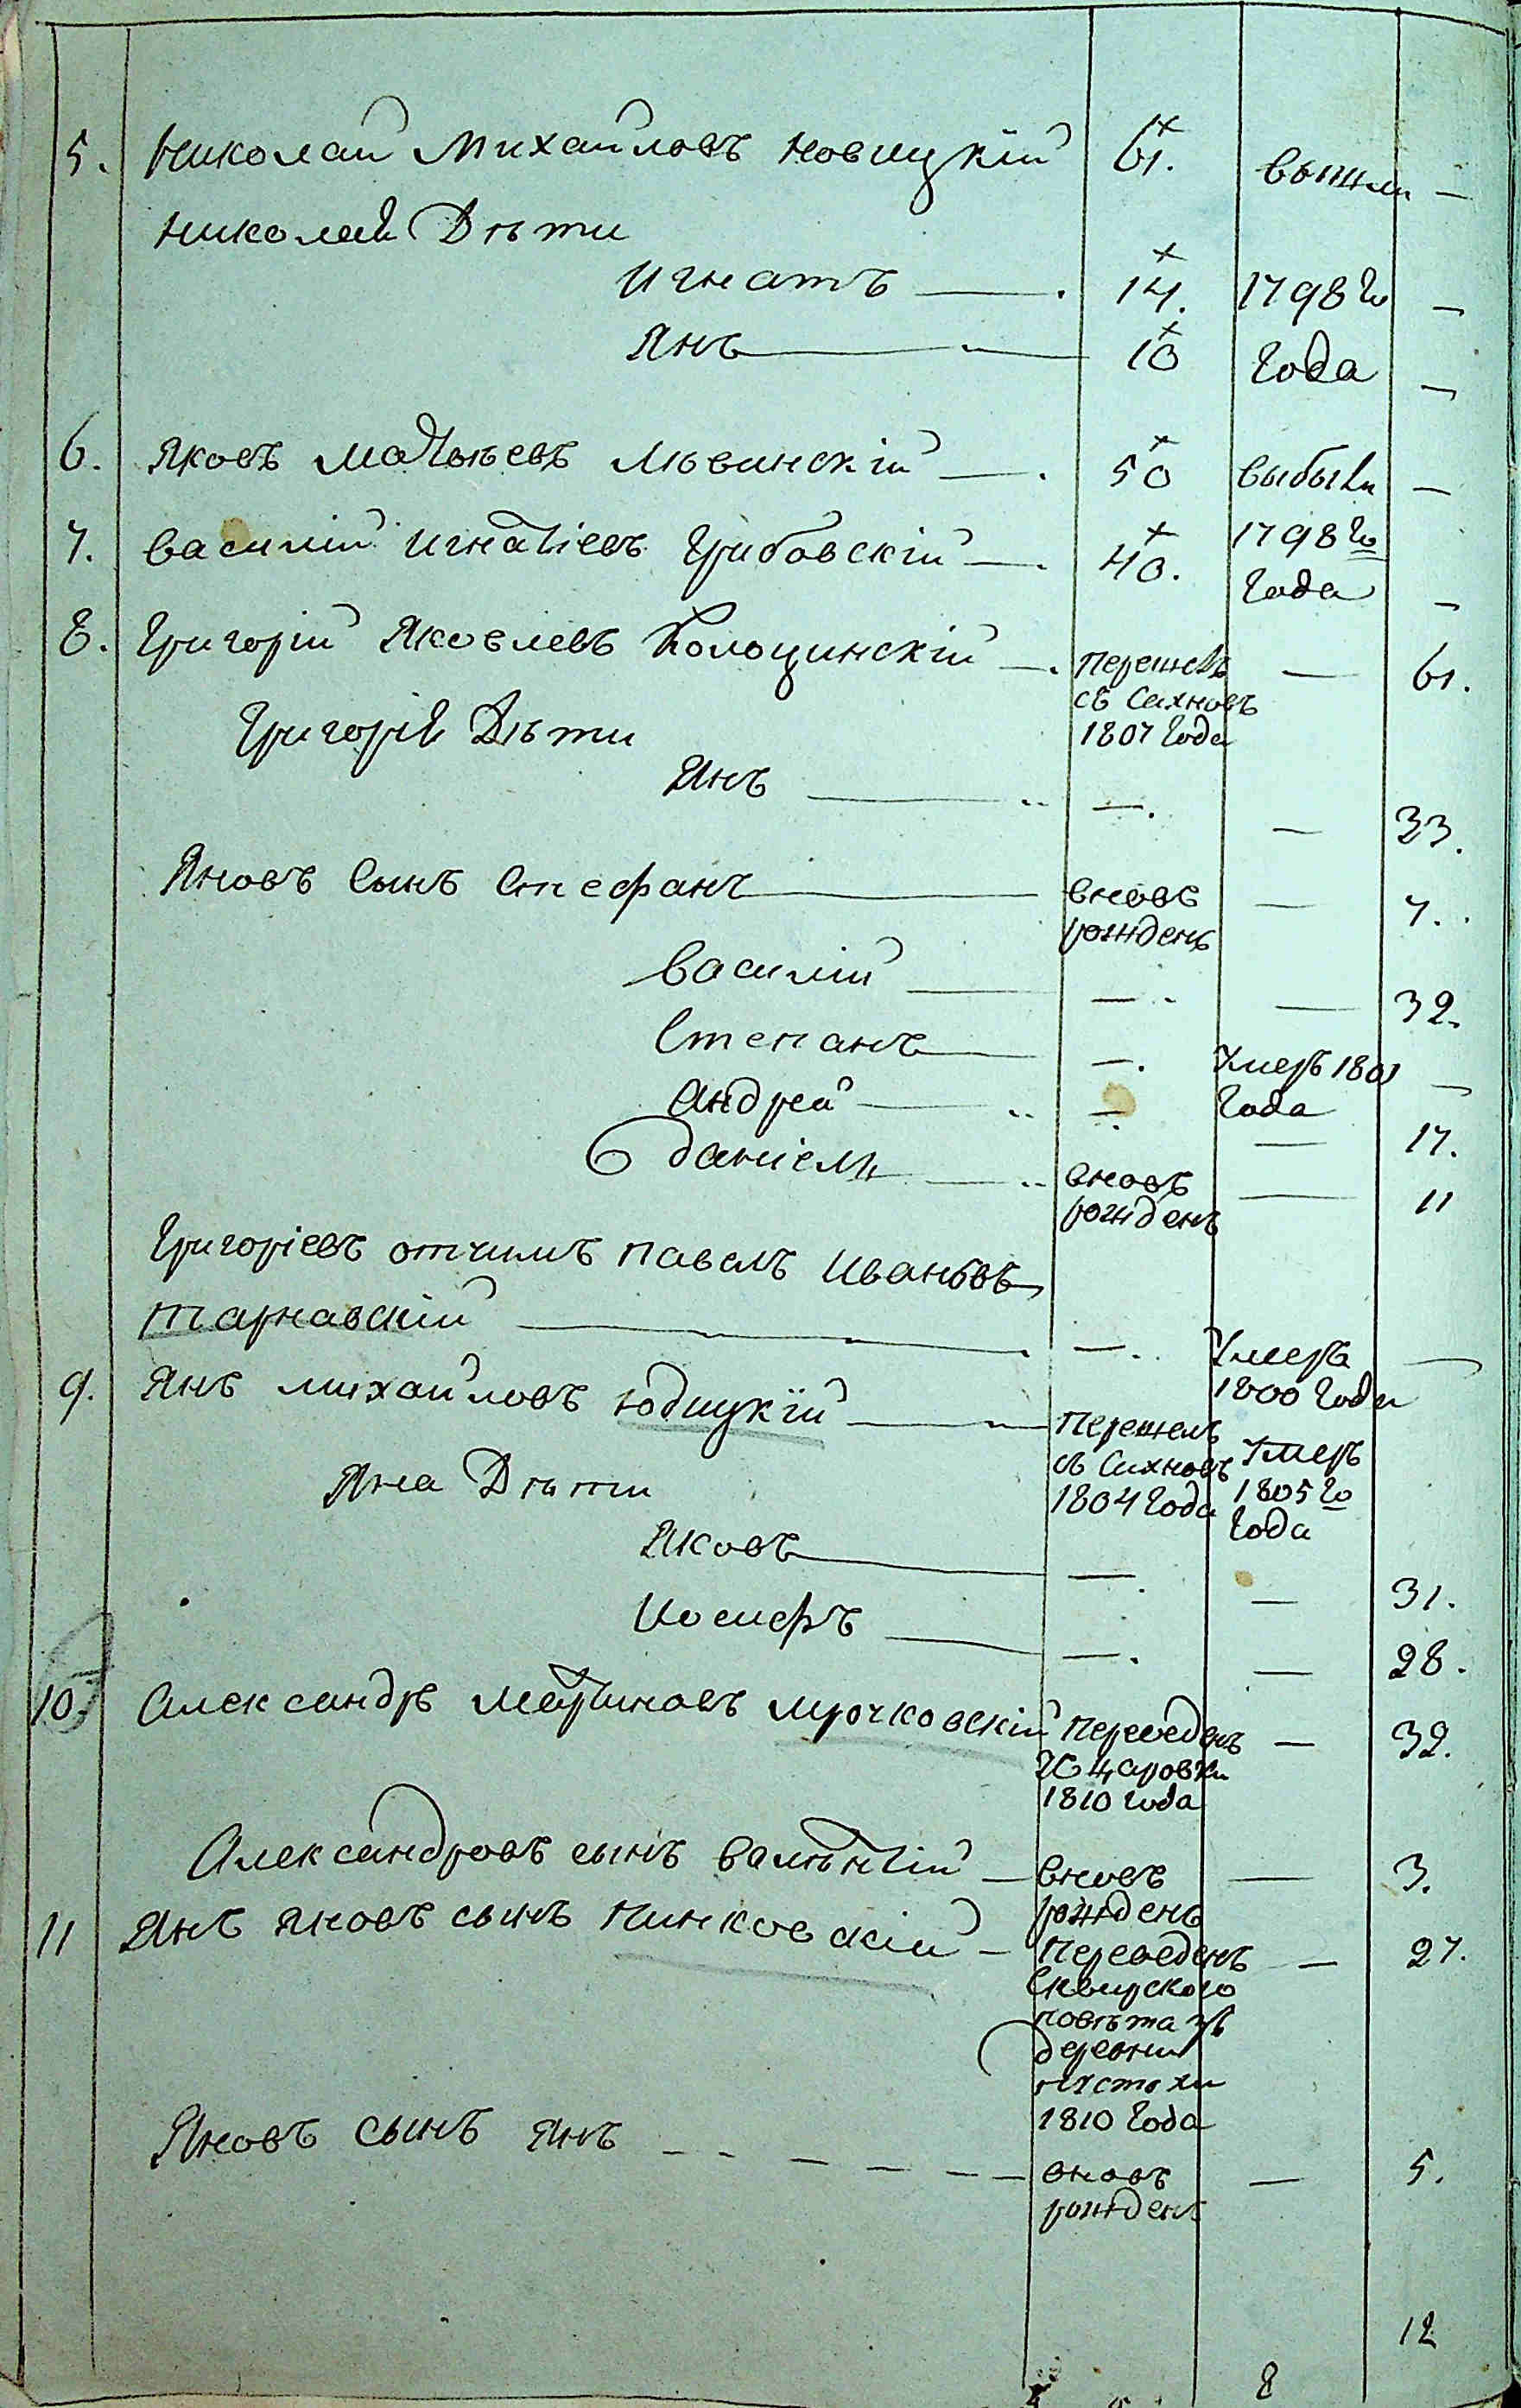 5. Николай Михайловъ Новицкій 61. вышли —
Николая Дѣти
Игнатъ — 14. 1798 го —
Янъ — 10 года —
6. Яковъ Матѳѣевъ Львинскій — 50 выбыли —
7. Василій Игнатіевъ Грибовскій — 40. 1798 го
года —
8. Григорій Яковлевъ Колоцинскій — перешелъ — 61.
съ Сихновъ
1807 года
Григорія Дѣти
Янъ — —. — 33.
Яновъ Сынъ Стефанъ — вновь — 7.
рожденъ
Василій — — — 32.
Степанъ — —. Умеръ 1801 —
года
Андрей — —. — 17.
Даніелъ — вновь — 11
рожденъ
Григоріевъ отчимъ Павелъ Ивановъ
Тарнавскій — —. Умеръ —
1800 года
9. Янъ Михайловъ Юдицкій — Перешелъ Умеръ
съ Сихновъ 1805 го
1804 года года
Яна Дѣти
Яковъ — —. — 31.
Иосифъ — —. — 28.
10. Александръ Мартиновъ Мрочковскій Переведенъ — 32.
Жаровки
1810 года
Александровъ сынъ Валентій — вновь — 3.
рожденъ
11 Янъ Яновъ сынъ Пинковскій — Переведенъ — 27.
Сквирского
повѣта зъ
деревни
1810 года
Яновъ сынъ Янъ — вновь — 5.
рожденъ
12
8